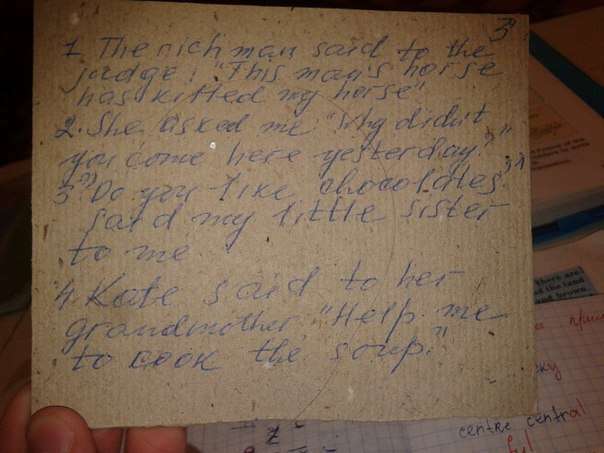 3
1 The rich man said to the
judge: "This man's horse
has killed my horse"
2. She asked me "Why didn't
you come here yesterday?"
3 "Do you like chocolates?"
said my little sister
to me
4. Kate said to her
grandmother "Help me
to cook the soup."
there are
centre central